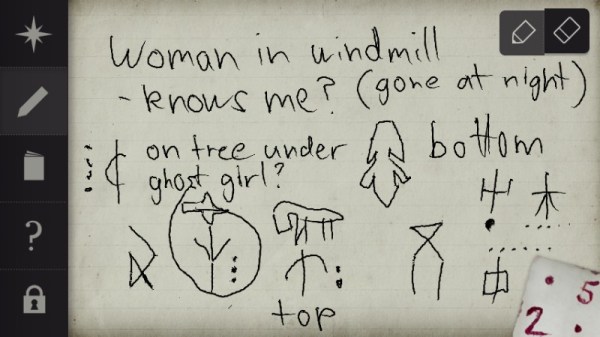 Woman in windmill
- knows me? (gone at night)
on tree under
ghost girl?
bottom
top
?
5
2